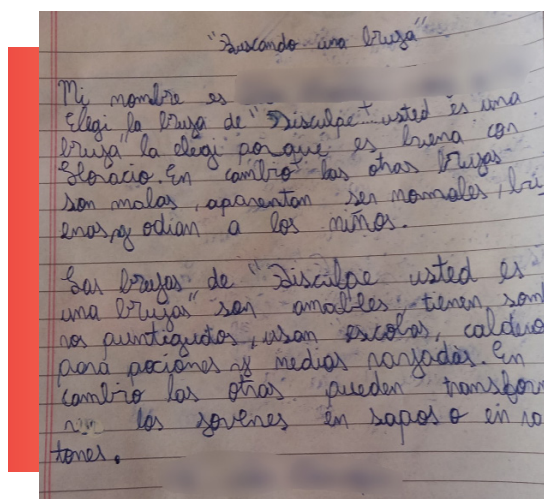 "Buscando una bruja"
Mi nombre es
Elegi la bruja de "Disculpe usted es una
bruja" la elegi porque es buena con
Horacio. En cambio las otras brujas
son malas, aparentan ser normales, bu
enas, y odian a los niños.
Las brujas de "Disculpe usted es
una brujas" son amables tienen somb
ros puntiagudos, usan escobas, calderos
para pociones y medias rayadas. En
cambio las otras pueden transform
los jovenes en sapos o en ra
tones.